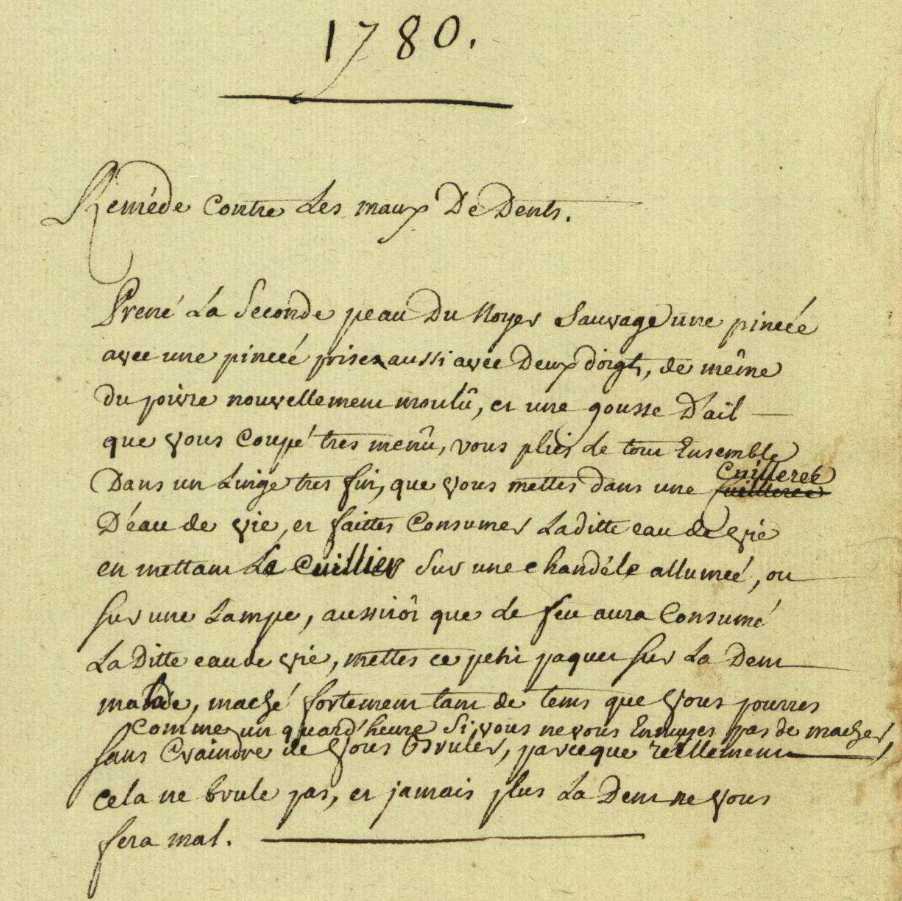 1780.
Reméde Contre Les maux De Dents.
Prené La Seconde peau Du Noyer Sauvage une pincée
avec une pinceé prise aussi avec Deux doigts, de même
du poivre nouvellement moulû, et une gousse D'ail
que vous Coupé tres menû, vous pliés le tout Ensemble
Dans un Linge tres fin, que vous mettes dans une Cuillereé
D'eau de vie, et faittes Consumer Laditte eau de vie
en mettant Le Cuillier Sur une chandéle allumeé, ou
sur une Lampe, aussitôt que le feu aura Consumé
La Ditte eau de vie, mettes ce petit paquet sur La Dent
malade, maché fortement tant de tems que vous pourres
Comme un quard'heure Si vous ne vous Ennuyes pas de macher,
sans Craindre de vous Bruler, parceque réellement
cela ne brule pas, et jamais plus La Dent ne vous
fera mal.